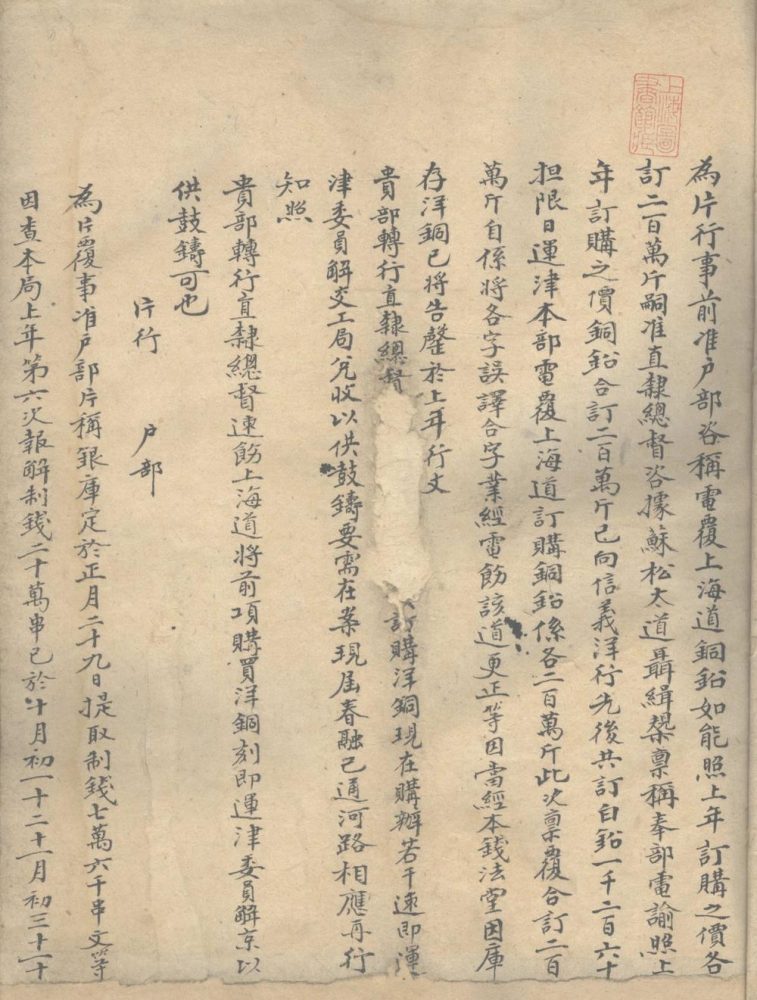 上海圖書館藏
為片行事前准户部咨稱電覆上海道銅鉛如能照上年訂購之價各
訂二百萬斤嗣准直隸總督咨據蘇松太道聶緝槼禀稱奉部電諭照上
年訂購之價銅鉛合訂二百萬斤已向信義洋行先後共訂白鉛一千二百六十
担限日運津本部電覆上海道訂購銅鉛係各二百萬斤此次禀覆合訂二百
萬斤自係將各字誤譯合字業經電飭該道更正等因當經本錢法堂因庫
存洋銅已將告罄於上年行文
貴部轉行直隸總督訂購洋銅現在購辦若干速即運
津委員解交工局兌收以供鼓鑄要需在案現届春融已通河路相應再行
知照
貴部轉行直隸總督速飭上海道將前項購買洋銅刻即運津委員解京以
供鼓鑄可也
片行 户部
為片覆事准户部片稱銀庫定於正月二十九日提取制錢七萬六千串文等
因查本局上年第六次報解制錢二十萬串已於十月初一十二十一月初三十一十